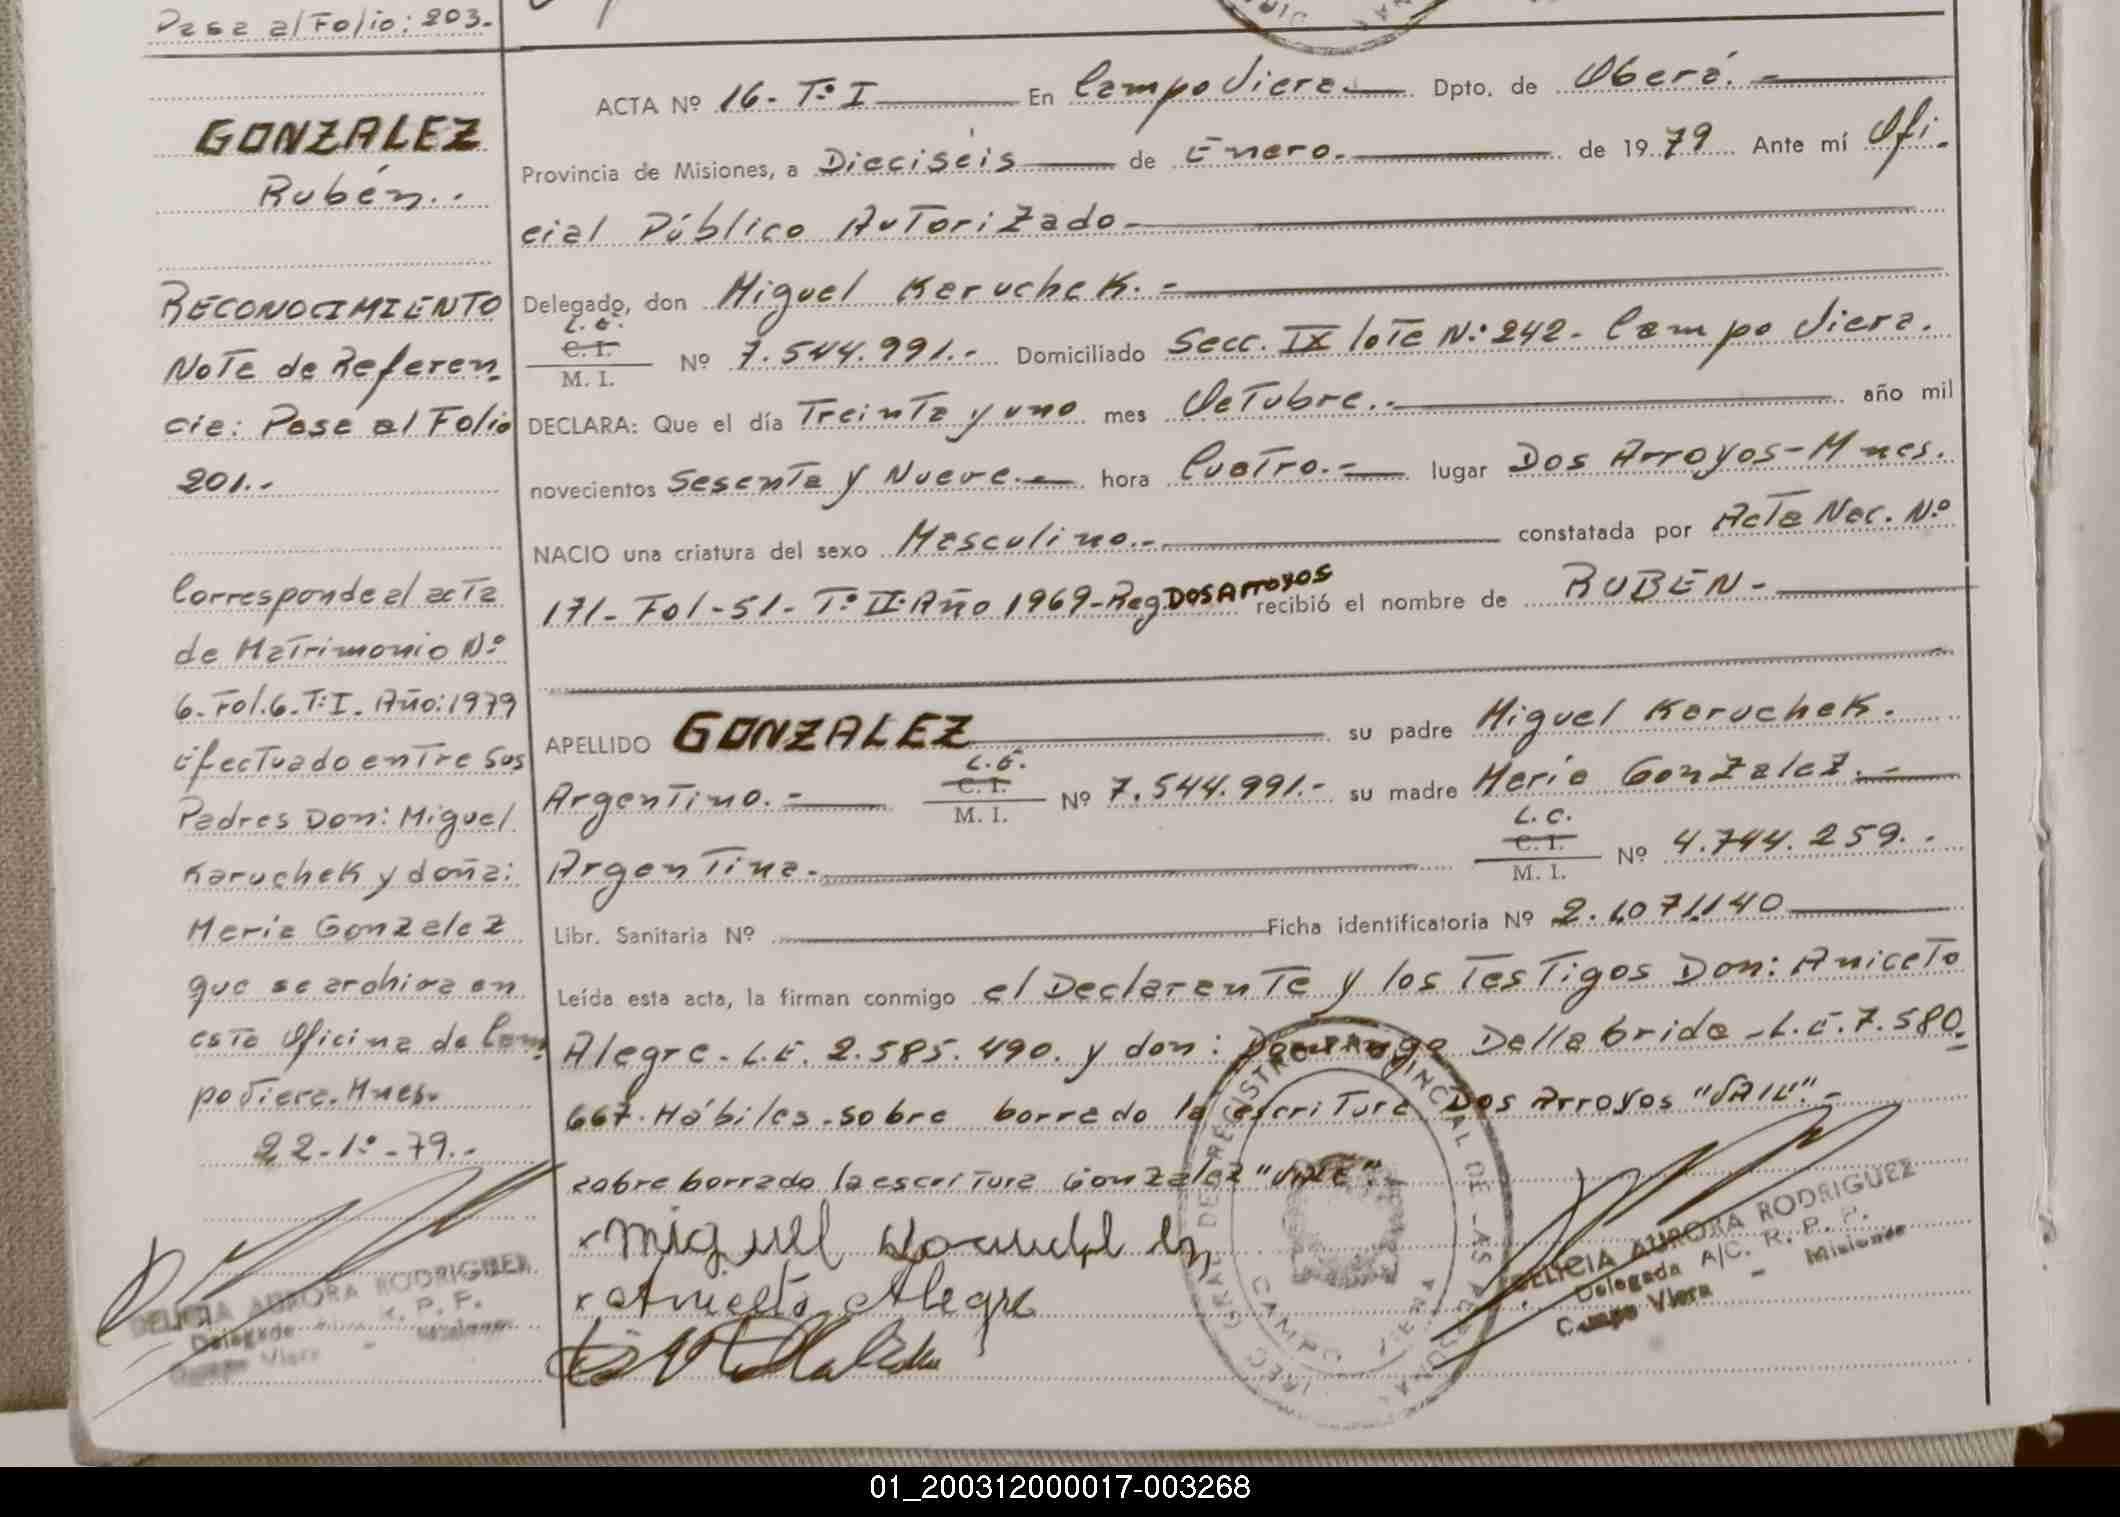 Pasa al Folio: 203.-
GONZALEZ
Rubén..
RECONOCIMIENTO
Nota de Referen
cia: Pasa al Folio
201..
Corresponde al acta
de Matrimonio Nº
6. Fol. 6. Tº I. Año: 1979
Efectuado entre sus
Padres Don: Miguel
Karuchek y doña:
Maria Gonzalez
que se archiva en
esta Oficina de Cam
po Viera. Mnes.
22-1º-79.-
DELICIA AURORA RODRIGUEZ
Delegada R. P. P.
Campo Viera - Misiones
ACTA Nº 16- Tº I En Campo Viera Dpto. de Oberá.-
Provincia de Misiones, a Dieciséis de Enero.- de 1979 Ante mí Ofi-
cial Público Autorizado-
Delegado, don Miguel Karuchek.-
L.E.
C. I.
M. I.
Nº 7.544.991.- Domiciliado Secc. IX lote Nº 242- Campo Viera.
DECLARA: Que el día Treinta y uno mes Octubre.- año mil
novecientos Sesenta y Nueve.- hora Cuatro.- lugar Dos Arroyos-Mnes.
NACIO una criatura del sexo Masculino.- constatada por Acta Nac. Nº
171- Fol-51- Tº II- Año 1969-Reg. Dos Arroyos recibió el nombre de RUBEN-
APELLIDO GONZALEZ su padre Miguel Karuchek.
Argentino.-
L.E.
C. I.
M. I.
Nº 7.544.991.- su madre Maria Gonzalez.-
Argentina.
L.C.
C. I.
M. I.
Nº 4.744.259..
Libr. Sanitaria Nº Ficha identificatoria Nº 2.1071140
Leída esta acta, la firman conmigo el Declarante y los Testigos Don: Aniceto
Alegre- L.E. 2.585.490. y don: Domingo Dellabrida-L.E. 7.580.
667. Hábiles-sobre borrado la escritura Dos Arroyos "VALE".-
sobre borrado la escritura Gonzalez "VALE".
Miguel
Aniceto Alegre
REGISTRO PROVINCIAL DE LAS PERSONAS
CAMPO VIERA
DELICIA AURORA RODRIGUEZ
Delegada A/C. R. P. P.
Campo Viera - Misiones
01_200312000017-003268